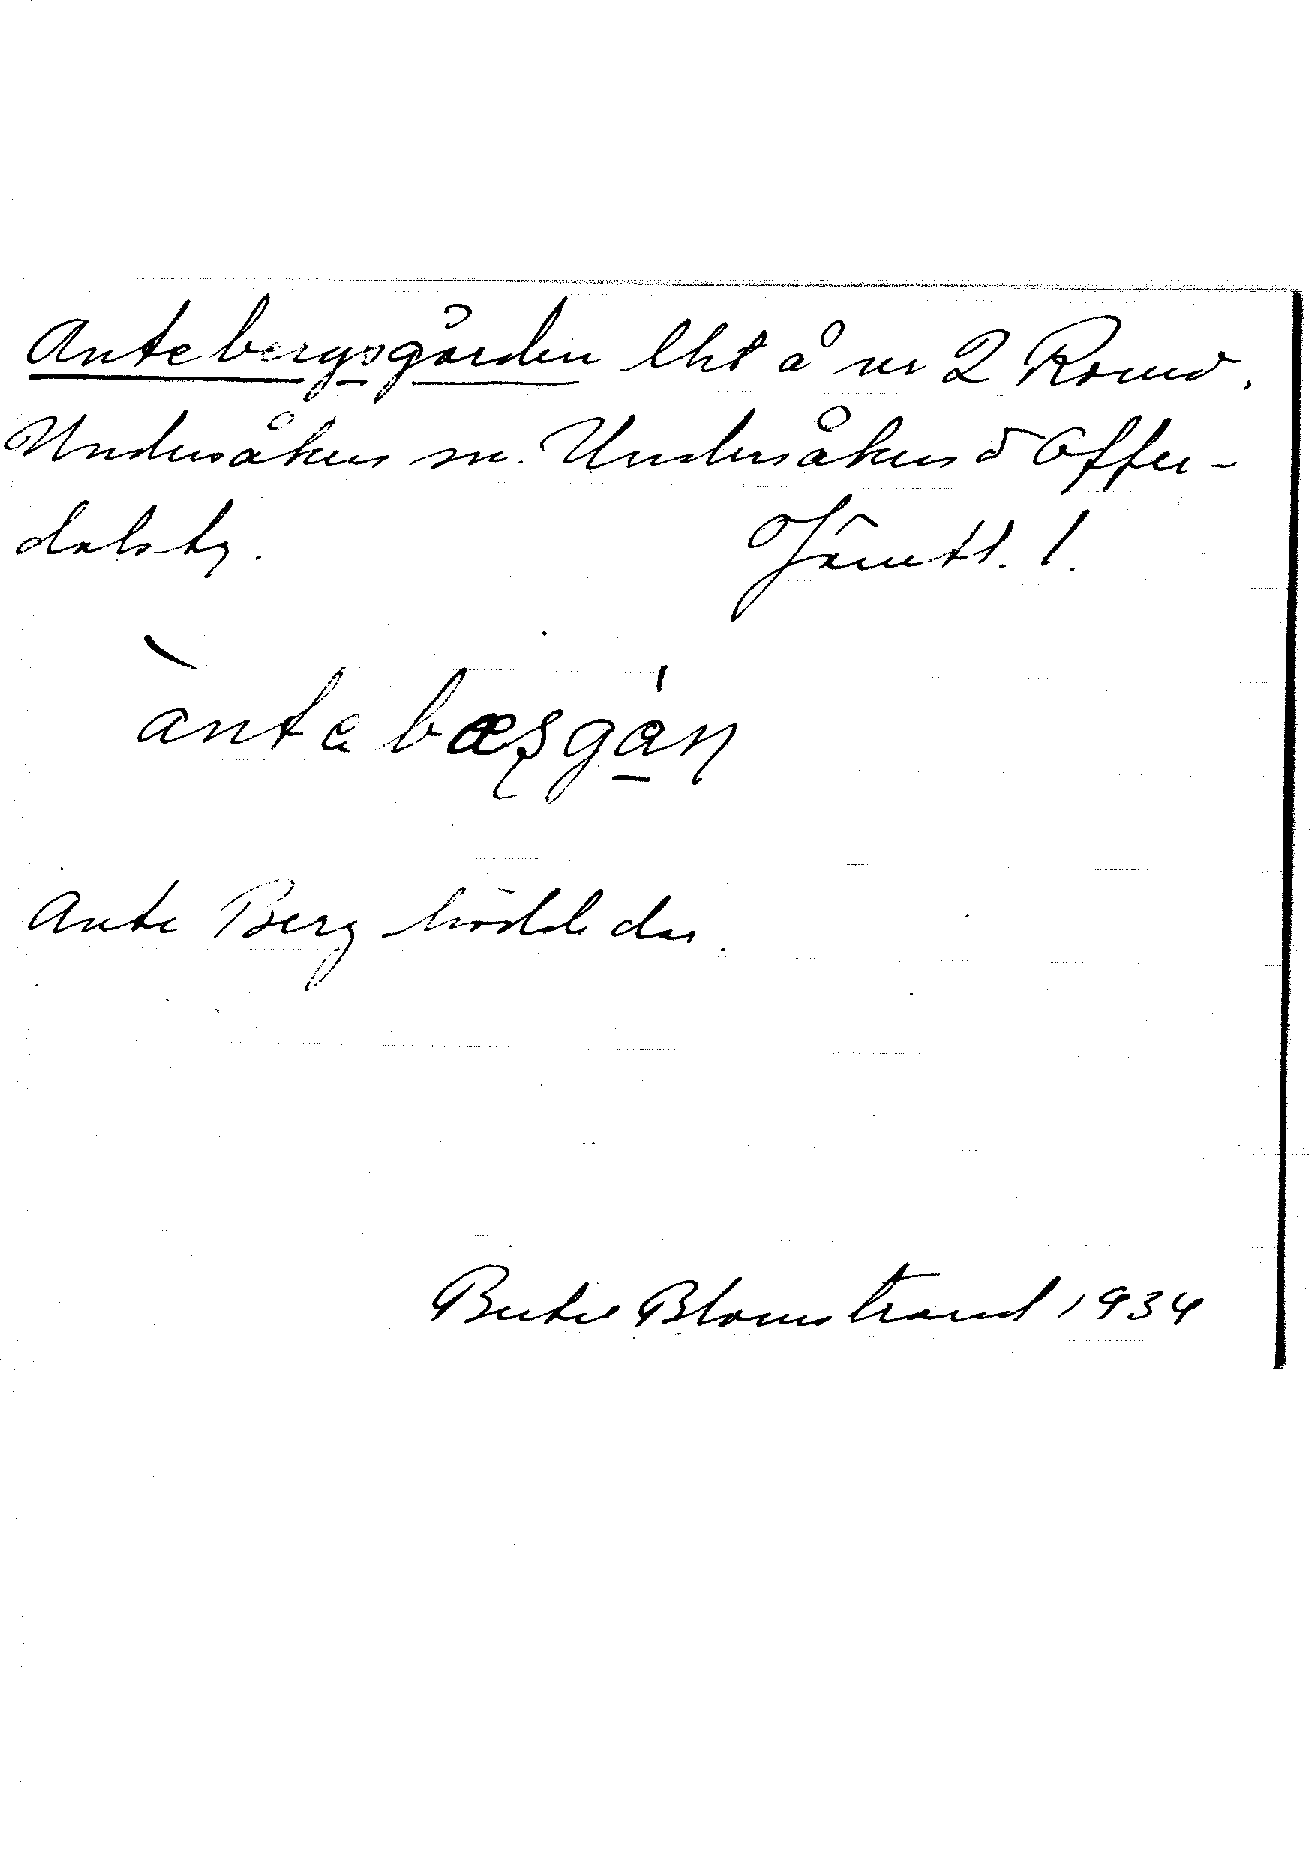 Antebergsgården lht å nr 2 Romo.
Undersåkers sn. Undersåkers o Offer-
dals tg. Jämtl. l.
àntabæşgán
Ante Berg bodde där.
Bertil Blomstrand 1934